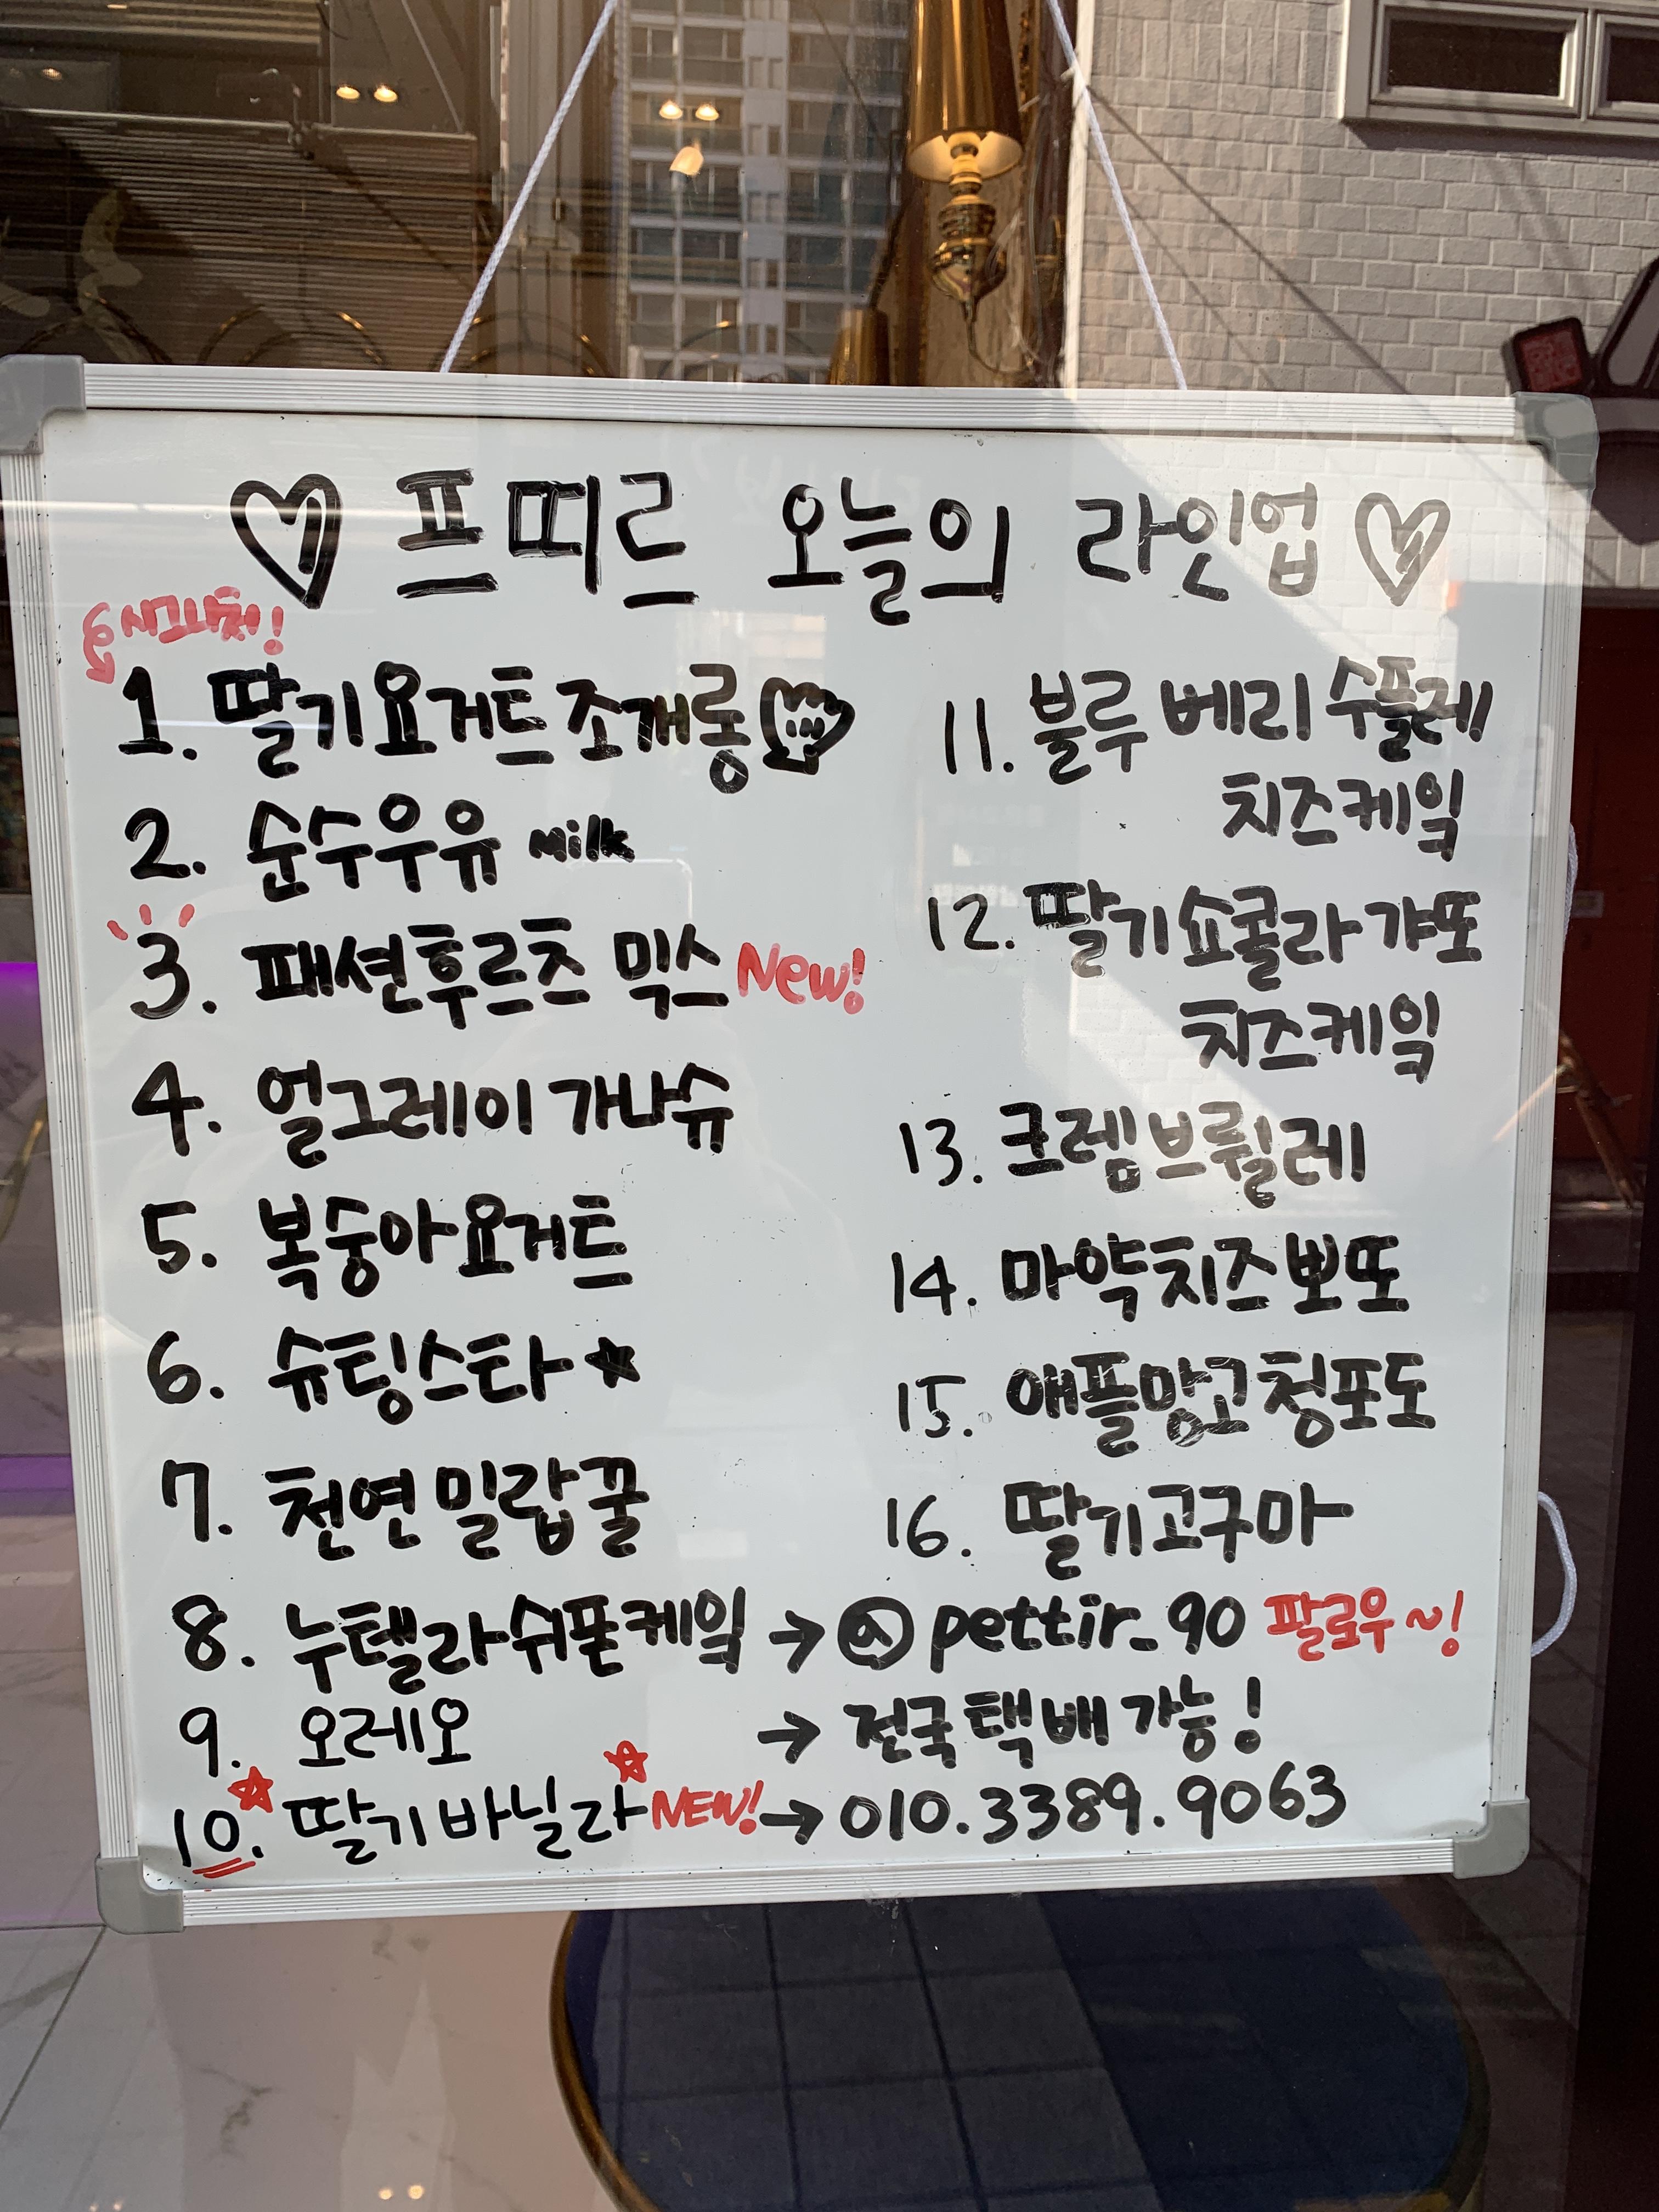 ♡ 프띠르 오늘의 라인업 ♡
시그니처!
1. 딸기요거트조개롱
2. 순수우유 milk
3. 패션후르츠 믹스 New!
4. 얼그레이 가나슈
5. 복숭아요거트
6. 슈팅스타★
7. 천연밀랍꿀
8. 누텔라쉬폰케잌
9. 오레오
10. 딸기바닐라 NEW!
11. 블루베리 수플레
치즈케잌
12. 딸기쇼콜라 갸또
치즈케잌
13. 크렘브륄레
14. 마약치즈뽀또
15. 애플망고청포도
16. 딸기고구마
→ @pettir_90 팔로우~!
→ 전국택배가능!
→ 010.3389.9063